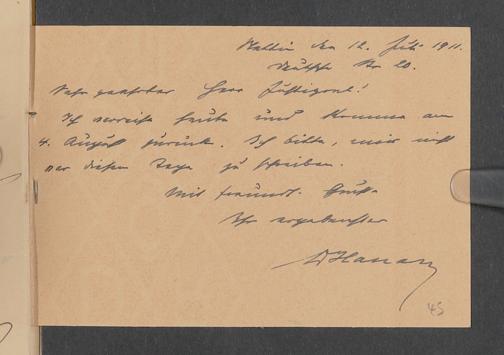 Stettin den 12. Juli 1911.
Deutsche Str 20.
Sehr geehrter Herr Justizrat!
Ich verreise heute und komme am
4. August zurück. Ich bitte, mir nicht
vor diesem Tage zu schreiben.
Mit freundl. Gruß
Ihr ergebenster
45